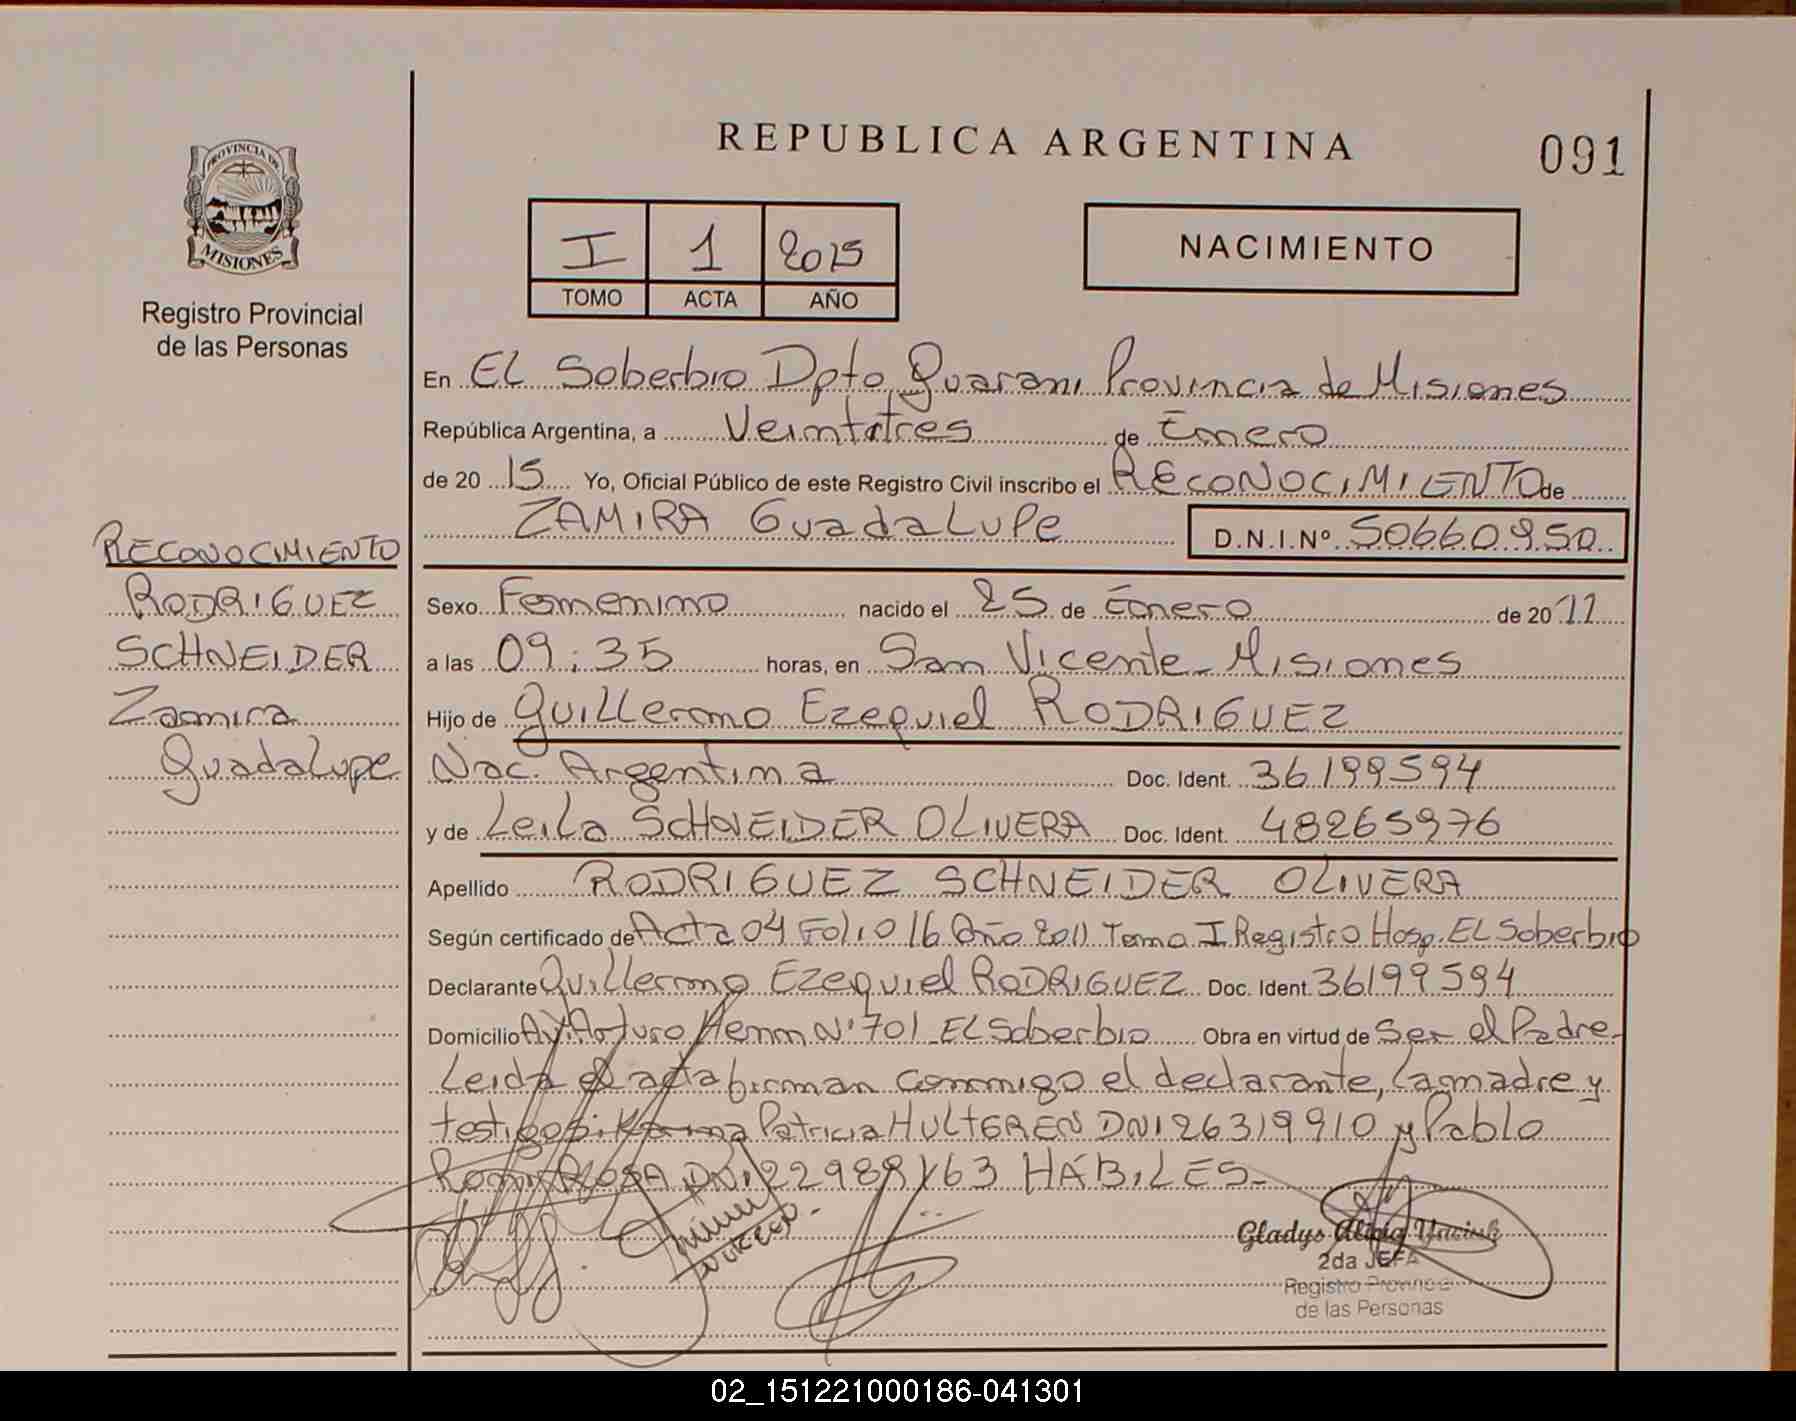 REPUBLICA ARGENTINA
091
PROVINCIA DE
MISIONES
Registro Provincial
de las Personas
I 1 2015
TOMO ACTA AÑO
NACIMIENTO
En EL Soberbio Dpto Guarani Provincia de Misiones
República Argentina, a Veintitres de Enero
de 20 15 Yo, Oficial Público de este Registro Civil inscribo el RECONOCIMIENTO de
ZAMIRA GuadaLupe D.N.I.Nº 50660950
RECONOCIMIENTO
RODRIGUEZ
SCHNEIDER
Zamira
GuadaLupe
Sexo Femenino nacido el 25 de Enero de 20 11
a las 09:35 horas, en San Vicente - Misiones
Hijo de Guillermo Ezequiel RODRIGUEZ
Nac. Argentina Doc. Ident. 36199594
y de Leila SCHNEIDER OLIVERA Doc. Ident. 48265976
Apellido RODRIGUEZ SCHNEIDER OLIVERA
Según certificado de Acta 04 Folio 16 Año 2011 Tomo I Registro Hosp. EL Soberbio
Declarante Guillermo Ezequiel RODRIGUEZ Doc. Ident. 36199594
Domicilio Av. Arturo Henn N° 701 EL Soberbio Obra en virtud de Ser el Padre
Leida el acta firman conmigo el declarante, la madre y
testigos: Karina Patricia HULTGREN DNI 26319910 y Pablo
ROSA DNI 22988163 HÁBILES-
Gladys Alicia
2da JEFA
Registro Provincial
de las Personas
02_151221000186-041301